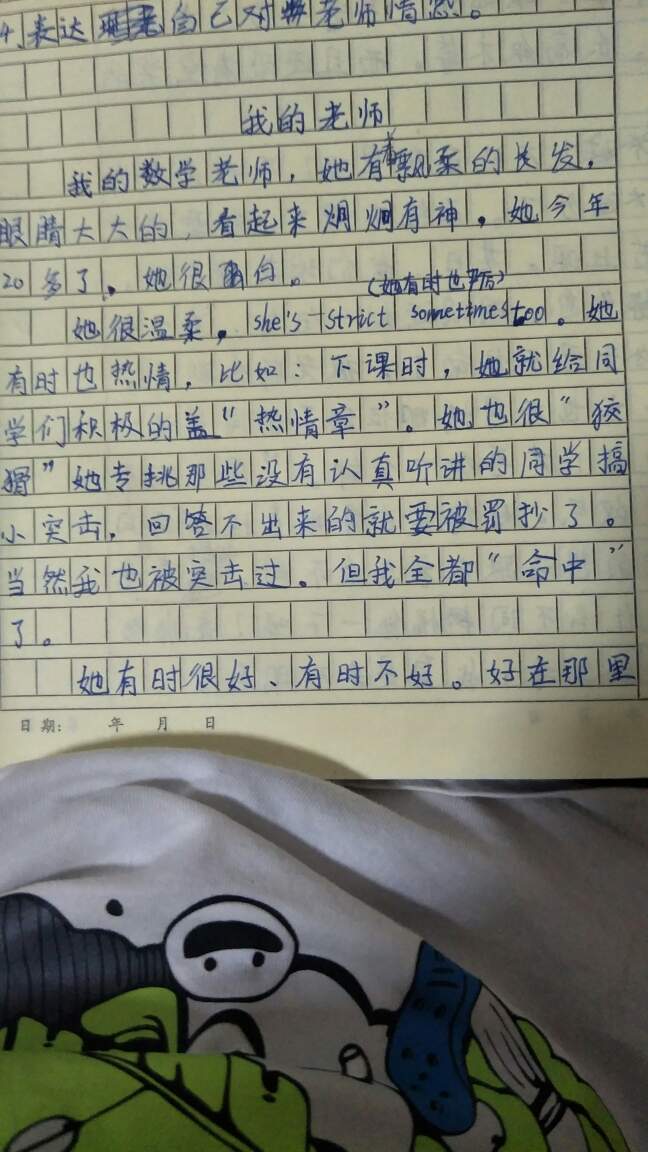 4、表达自己对老师情感。
我的老师
我的数学老师，她有飘柔的长发，
眼睛大大的，看起来炯炯有神，她今年
20多了，她很白。
（她有时也严厉）
她很温柔，she's strict sometimes too。她
有时也热情，比如：下课时，她就给同
学们积极的盖“热情章”。她也很“狡
猾”她专挑那些没有认真听讲的同学搞
小突击，回答不出来的就要被罚抄了。
当然我也被突击过。但我全都“命中”
了。
她有时很好、有时不好。好在那里
日期： 年 月 日